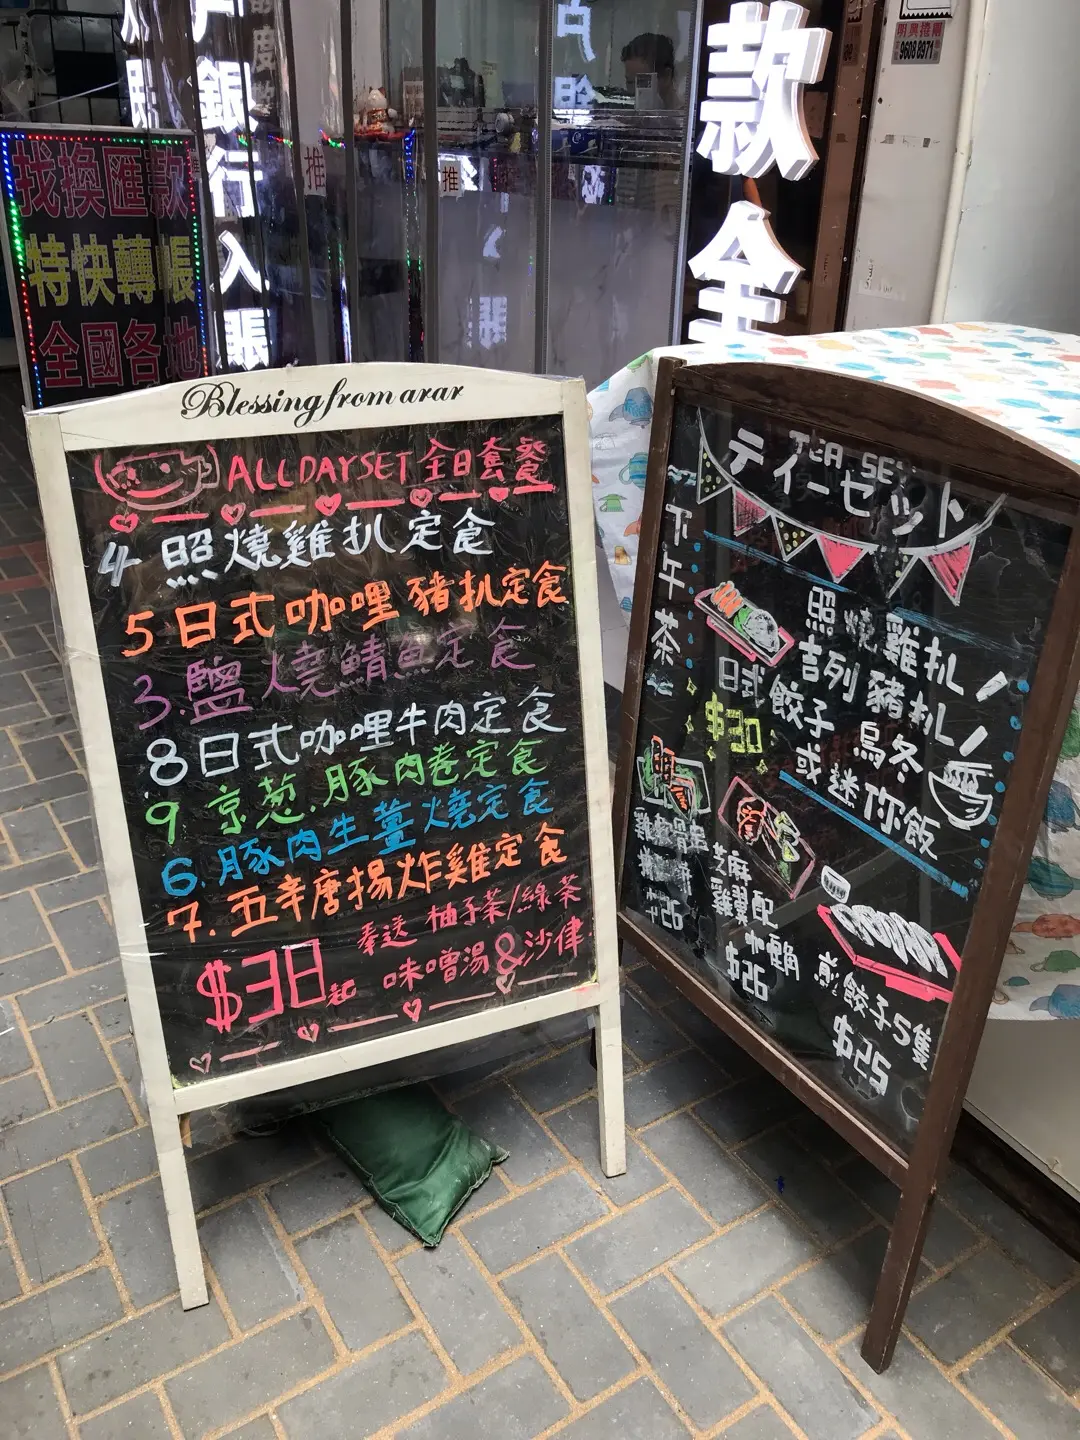 款
全
銀
行
入
賬
明興搬屋
9608 8971
推
推
找換匯款
特快轉帳
全國各地
Blessing from arar
ALL DAY SET 全日套餐
4 照燒雞扒定食
5 日式咖哩豬扒定食
3. 鹽燒鯖魚定食
8 日式咖哩牛肉定食
9 京葱.豚肉卷定食
6. 豚肉生薑燒定食
7. 五辛唐揚炸雞定食
$38起
奉送 柚子茶/綠茶
味噌湯&沙律.
TEA SET
ティーセット
下午茶
照燒雞扒/
吉列豬扒/
日式餃子 烏冬
或迷你飯
$30
雞軟骨串
$26
芝麻
雞翼配
$26
煎餃子5隻
$25